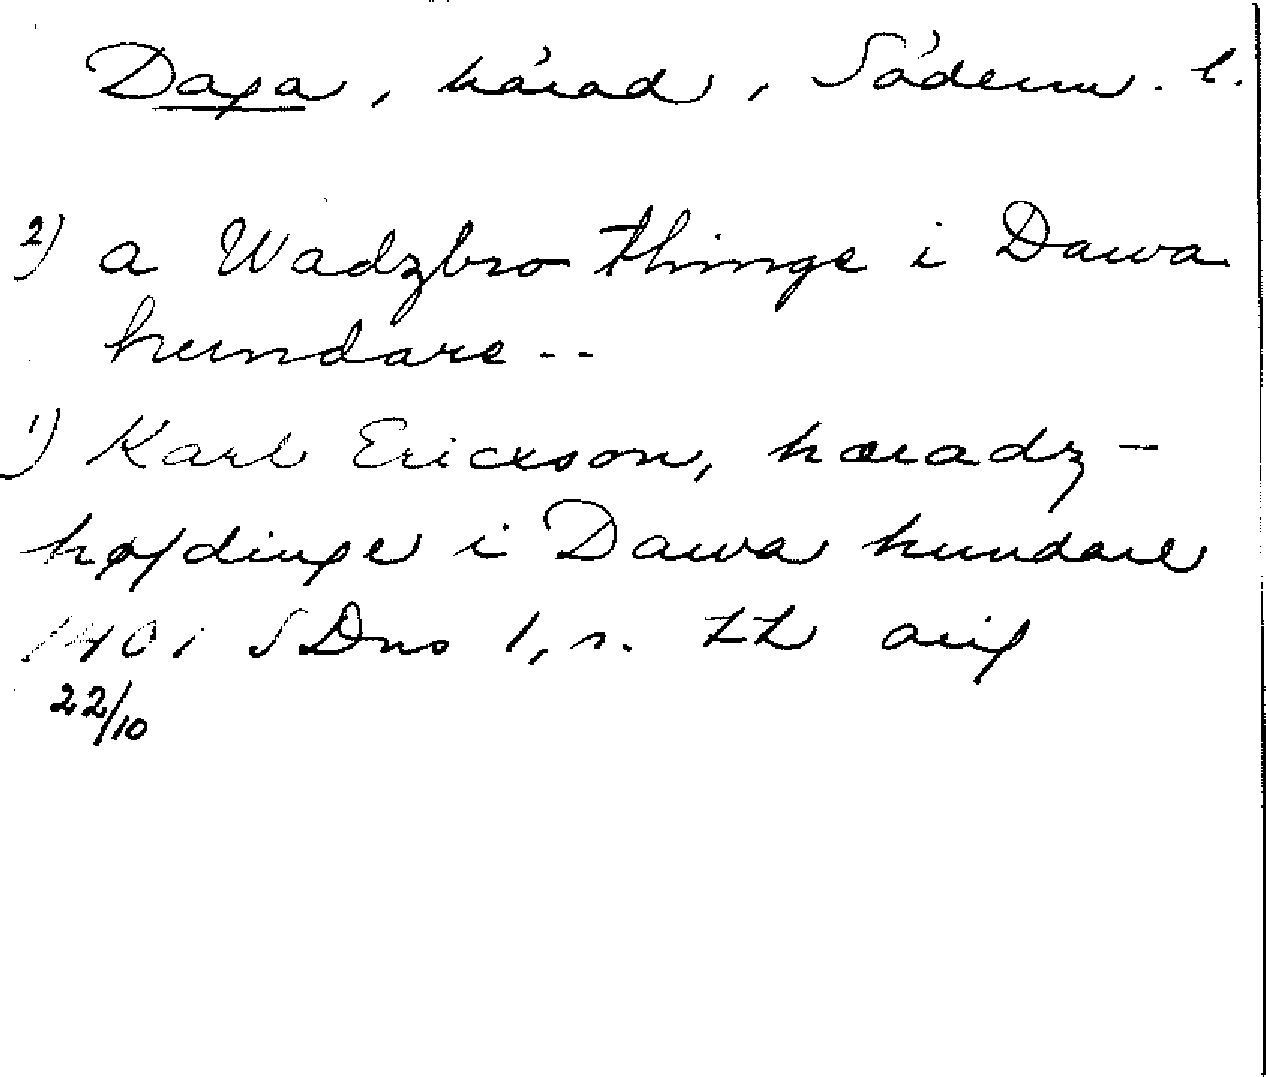 Daga, härad, Söderm. l.
2) a Wadzbro thinge i Dawa
hundare --
1) Karl Ericxson, hæradz-
høfdinge i Dawa hundare
1401 SDns 1, s. 44 orig
22/10